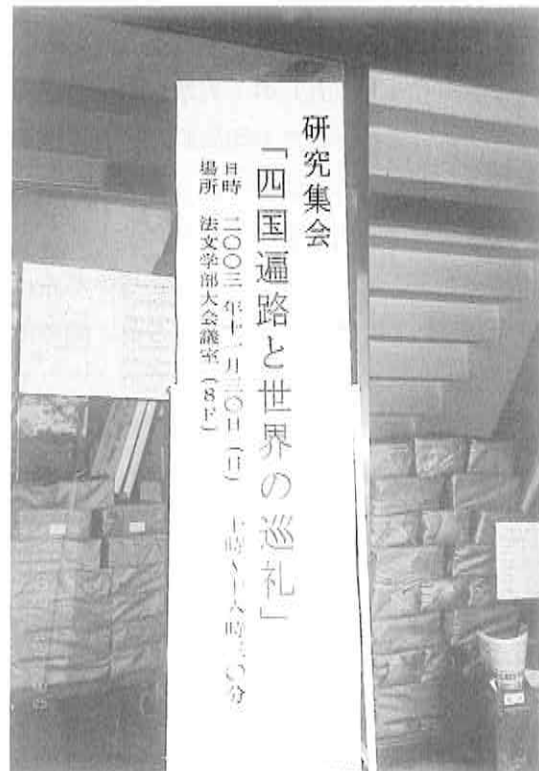 研究集会
「四国遍路と世界の巡礼」
日時 二〇〇三年十一月三〇日(日) 十時〜十六時三〇分
場所 法文学部大会議室(8F)